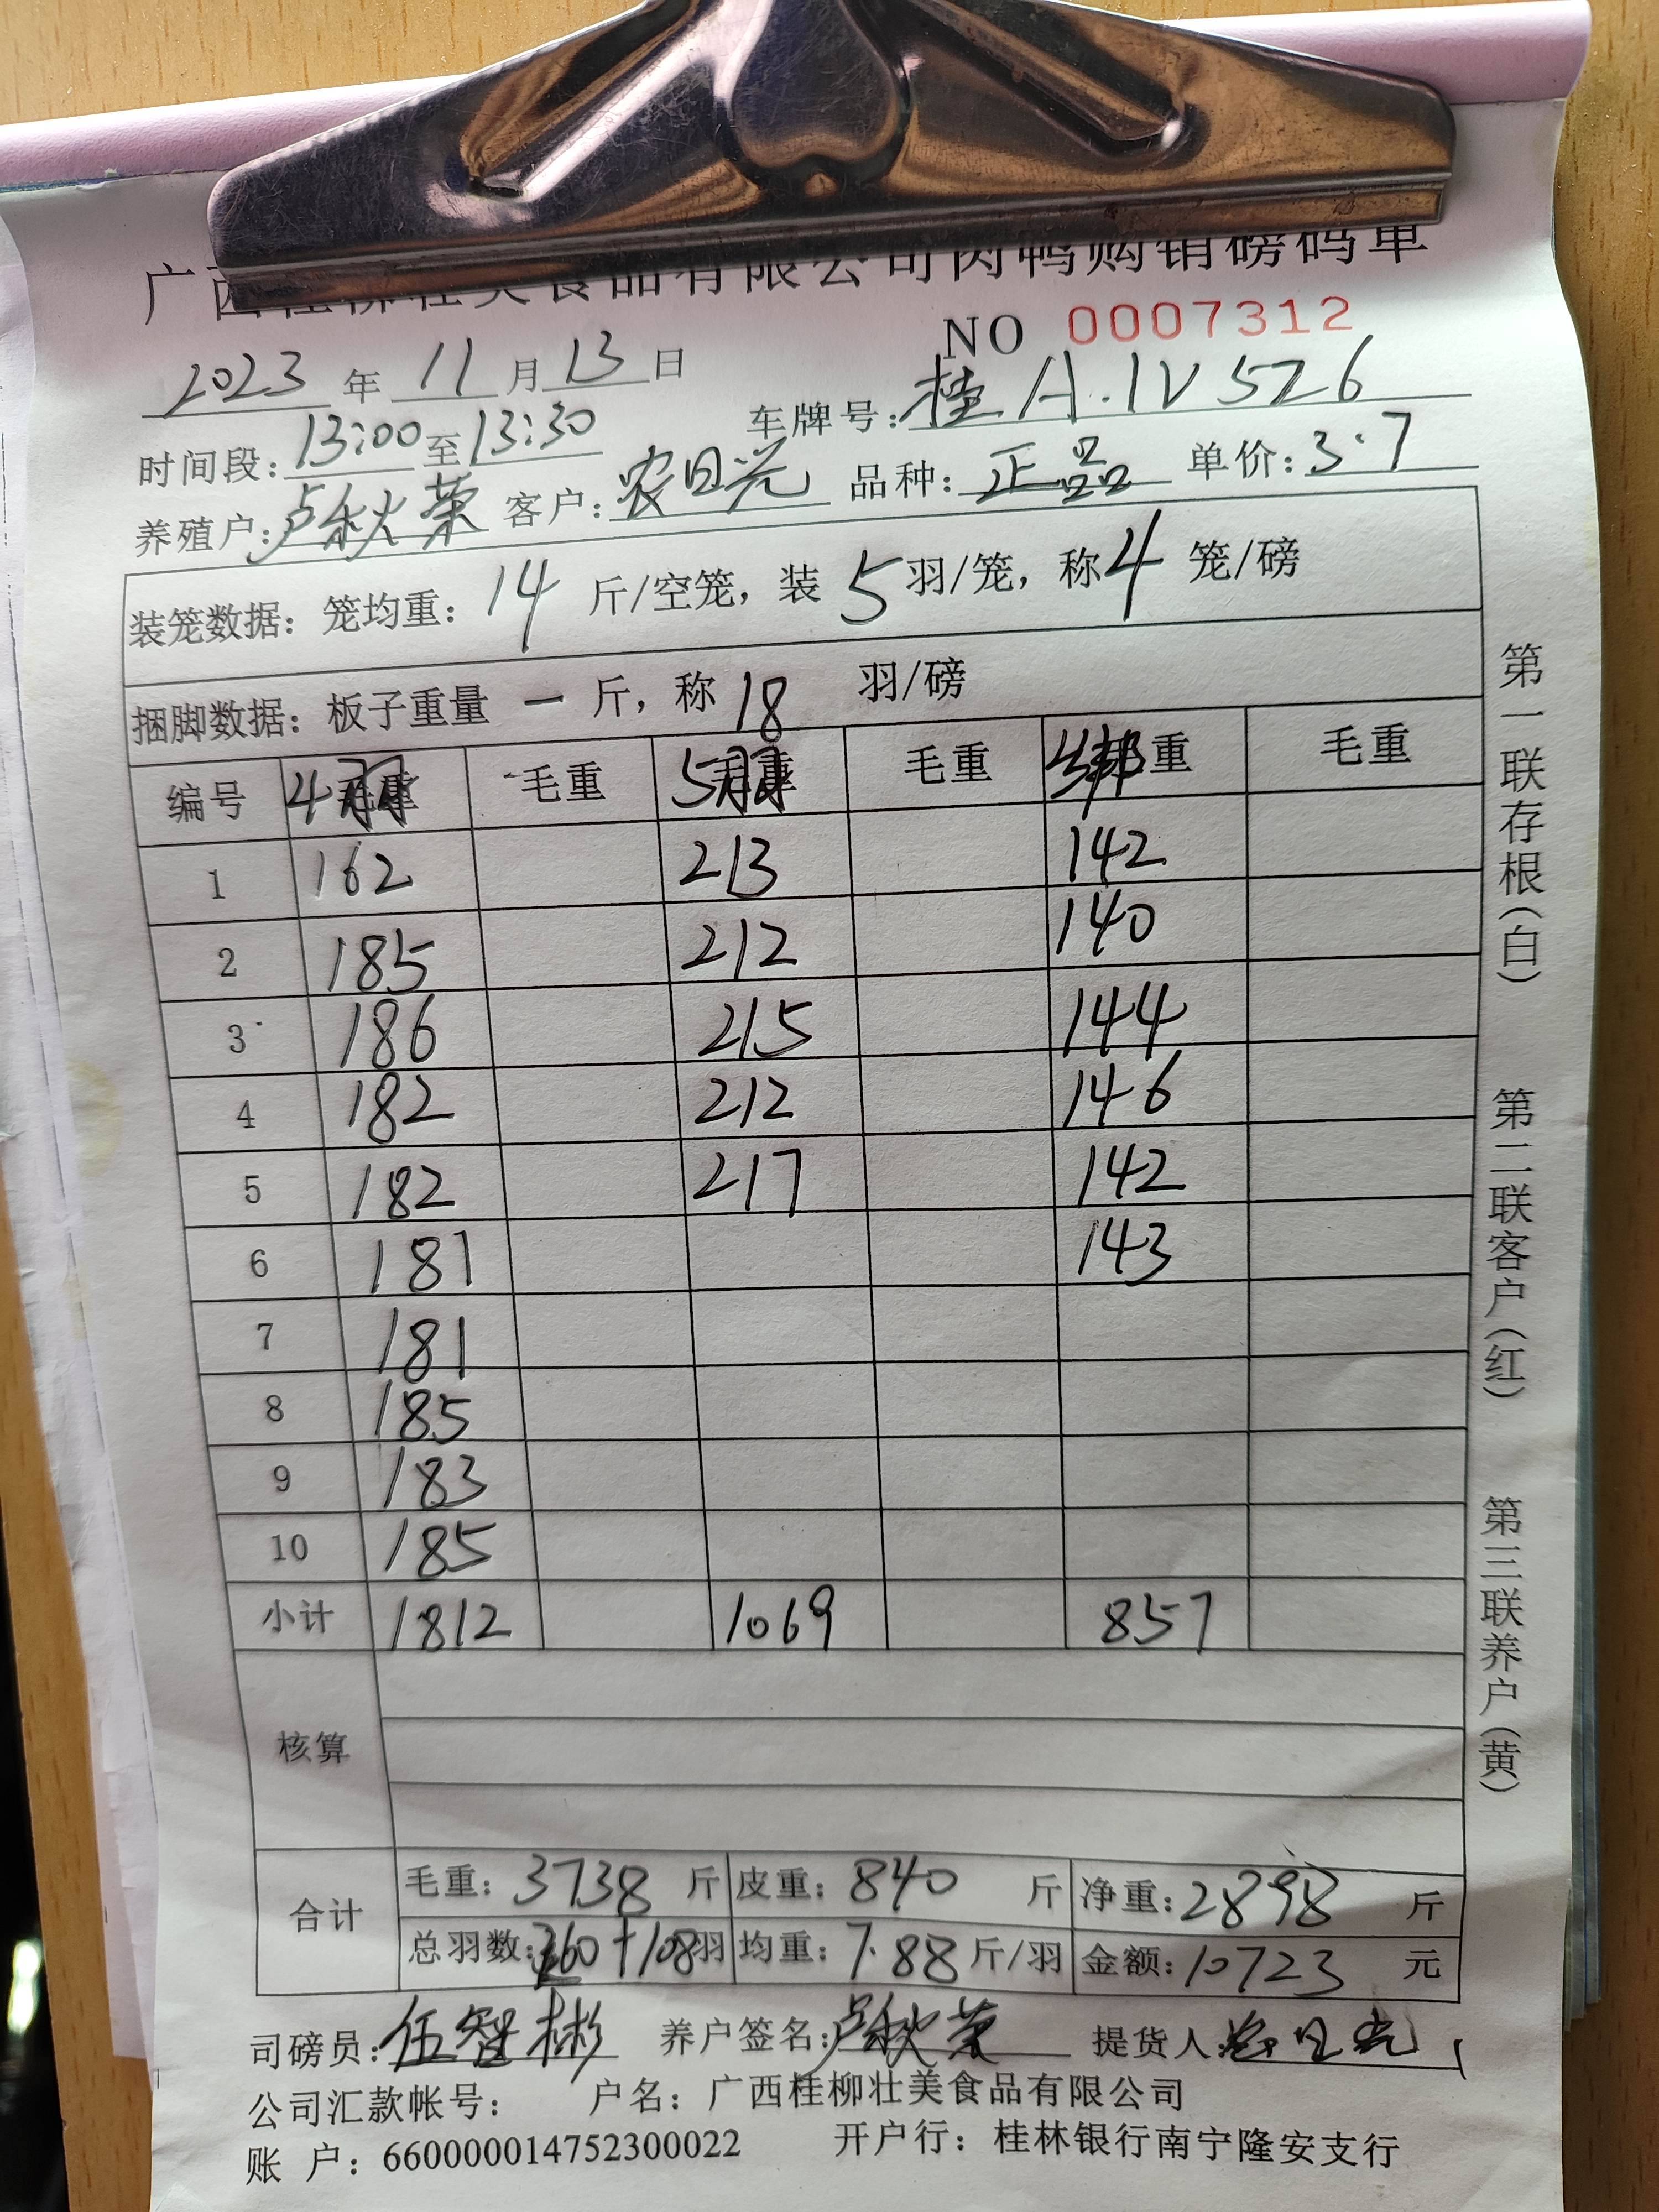 广西桂柳壮美食品有限公司肉鸭购销磅码单
NO 0007312
2023 年 11 月 13 日
时间段: 13:00 至 13:30 车牌号: 桂A.1V526
养殖户: 卢秋荣 客户: 农日光 品种: 正品 单价: 3.7
装笼数据: 笼均重: 14 斤/空笼, 装 5 羽/笼, 称 4 笼/磅
捆脚数据: 板子重量 一 斤, 称 18 羽/磅
编号 4羽 毛重 5羽 毛重 绑 重 毛重
1 162 213 142
2 185 212 140
3 186 215 144
4 182 212 146
5 182 217 142
6 181 143
7 181
8 185
9 183
10 185
小计 1812 1069 857
核算
合计 毛重: 3738 斤 皮重: 840 斤 净重: 2898 斤
总羽数: 260+108 羽 均重: 7.88 斤/羽 金额: 10723 元
司磅员: 伍智彬 养户签名: 卢秋荣 提货人: 农日光
公司汇款帐号: 户名: 广西桂柳壮美食品有限公司
账 户: 660000014752300022 开户行: 桂林银行南宁隆安支行
第一联存根(白) 第二联客户(红) 第三联养户(黄)